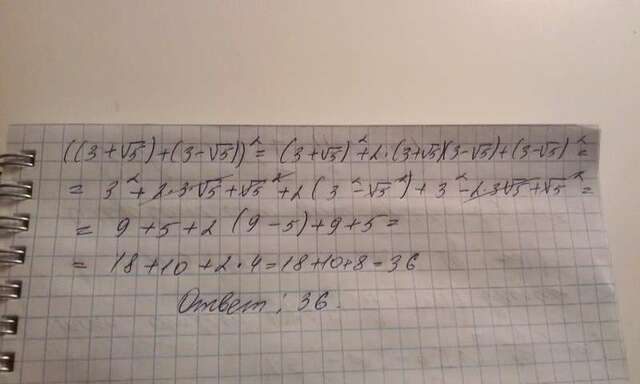 ((3+√5)+(3-√5))²= (3+√5)²+2·(3+√5)(3-√5)+(3-√5)²=
= 3²+2·3√5+√5²+2(3²-√5²)+3²-2·3√5+√5²=
= 9+5+2(9-5)+9+5=
= 18+10+2·4=18+10+8=36
Ответ: 36.